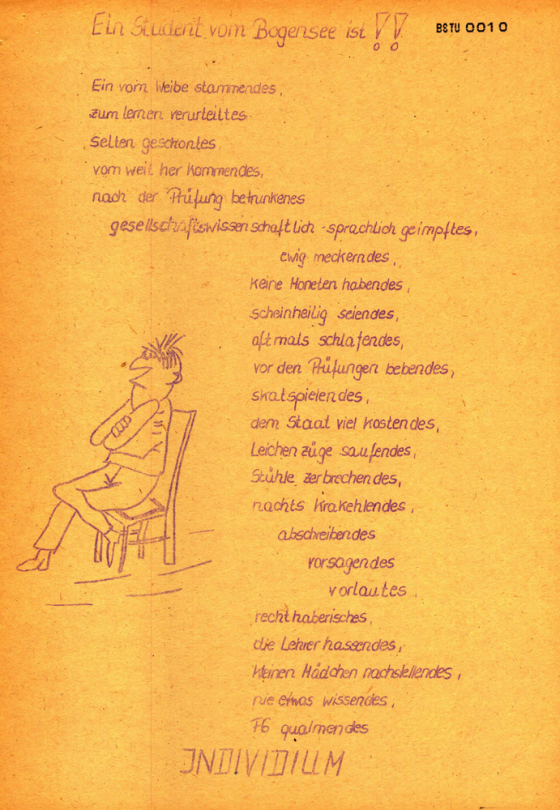 Ein Student vom Bogensee ist !!
BSTU 0010
Ein vom Weibe stammendes,
zum lernen verurteiltes
Selten geschontes,
vom weit her kommendes,
nach der Prüfung betrunkenes
gesellschaftswissenschaftlich-sprachlich geimpftes,
ewig meckerndes,
keine Moneten habendes,
scheinheilig seiendes,
oftmals schlafendes,
vor den Prüfungen bebendes,
skatspielendes,
dem Staat viel kostendes,
Leichenzüge saufendes,
Stühle zerbrechendes,
nachts krakehlendes,
abschreibendes
vorsagendes
vorlautes
rechthaberisches,
die Lehrer hassendes,
kleinen Mädchen nachstellendes,
nie etwas wissendes,
F6 qualmendes
INDIVIDIUM